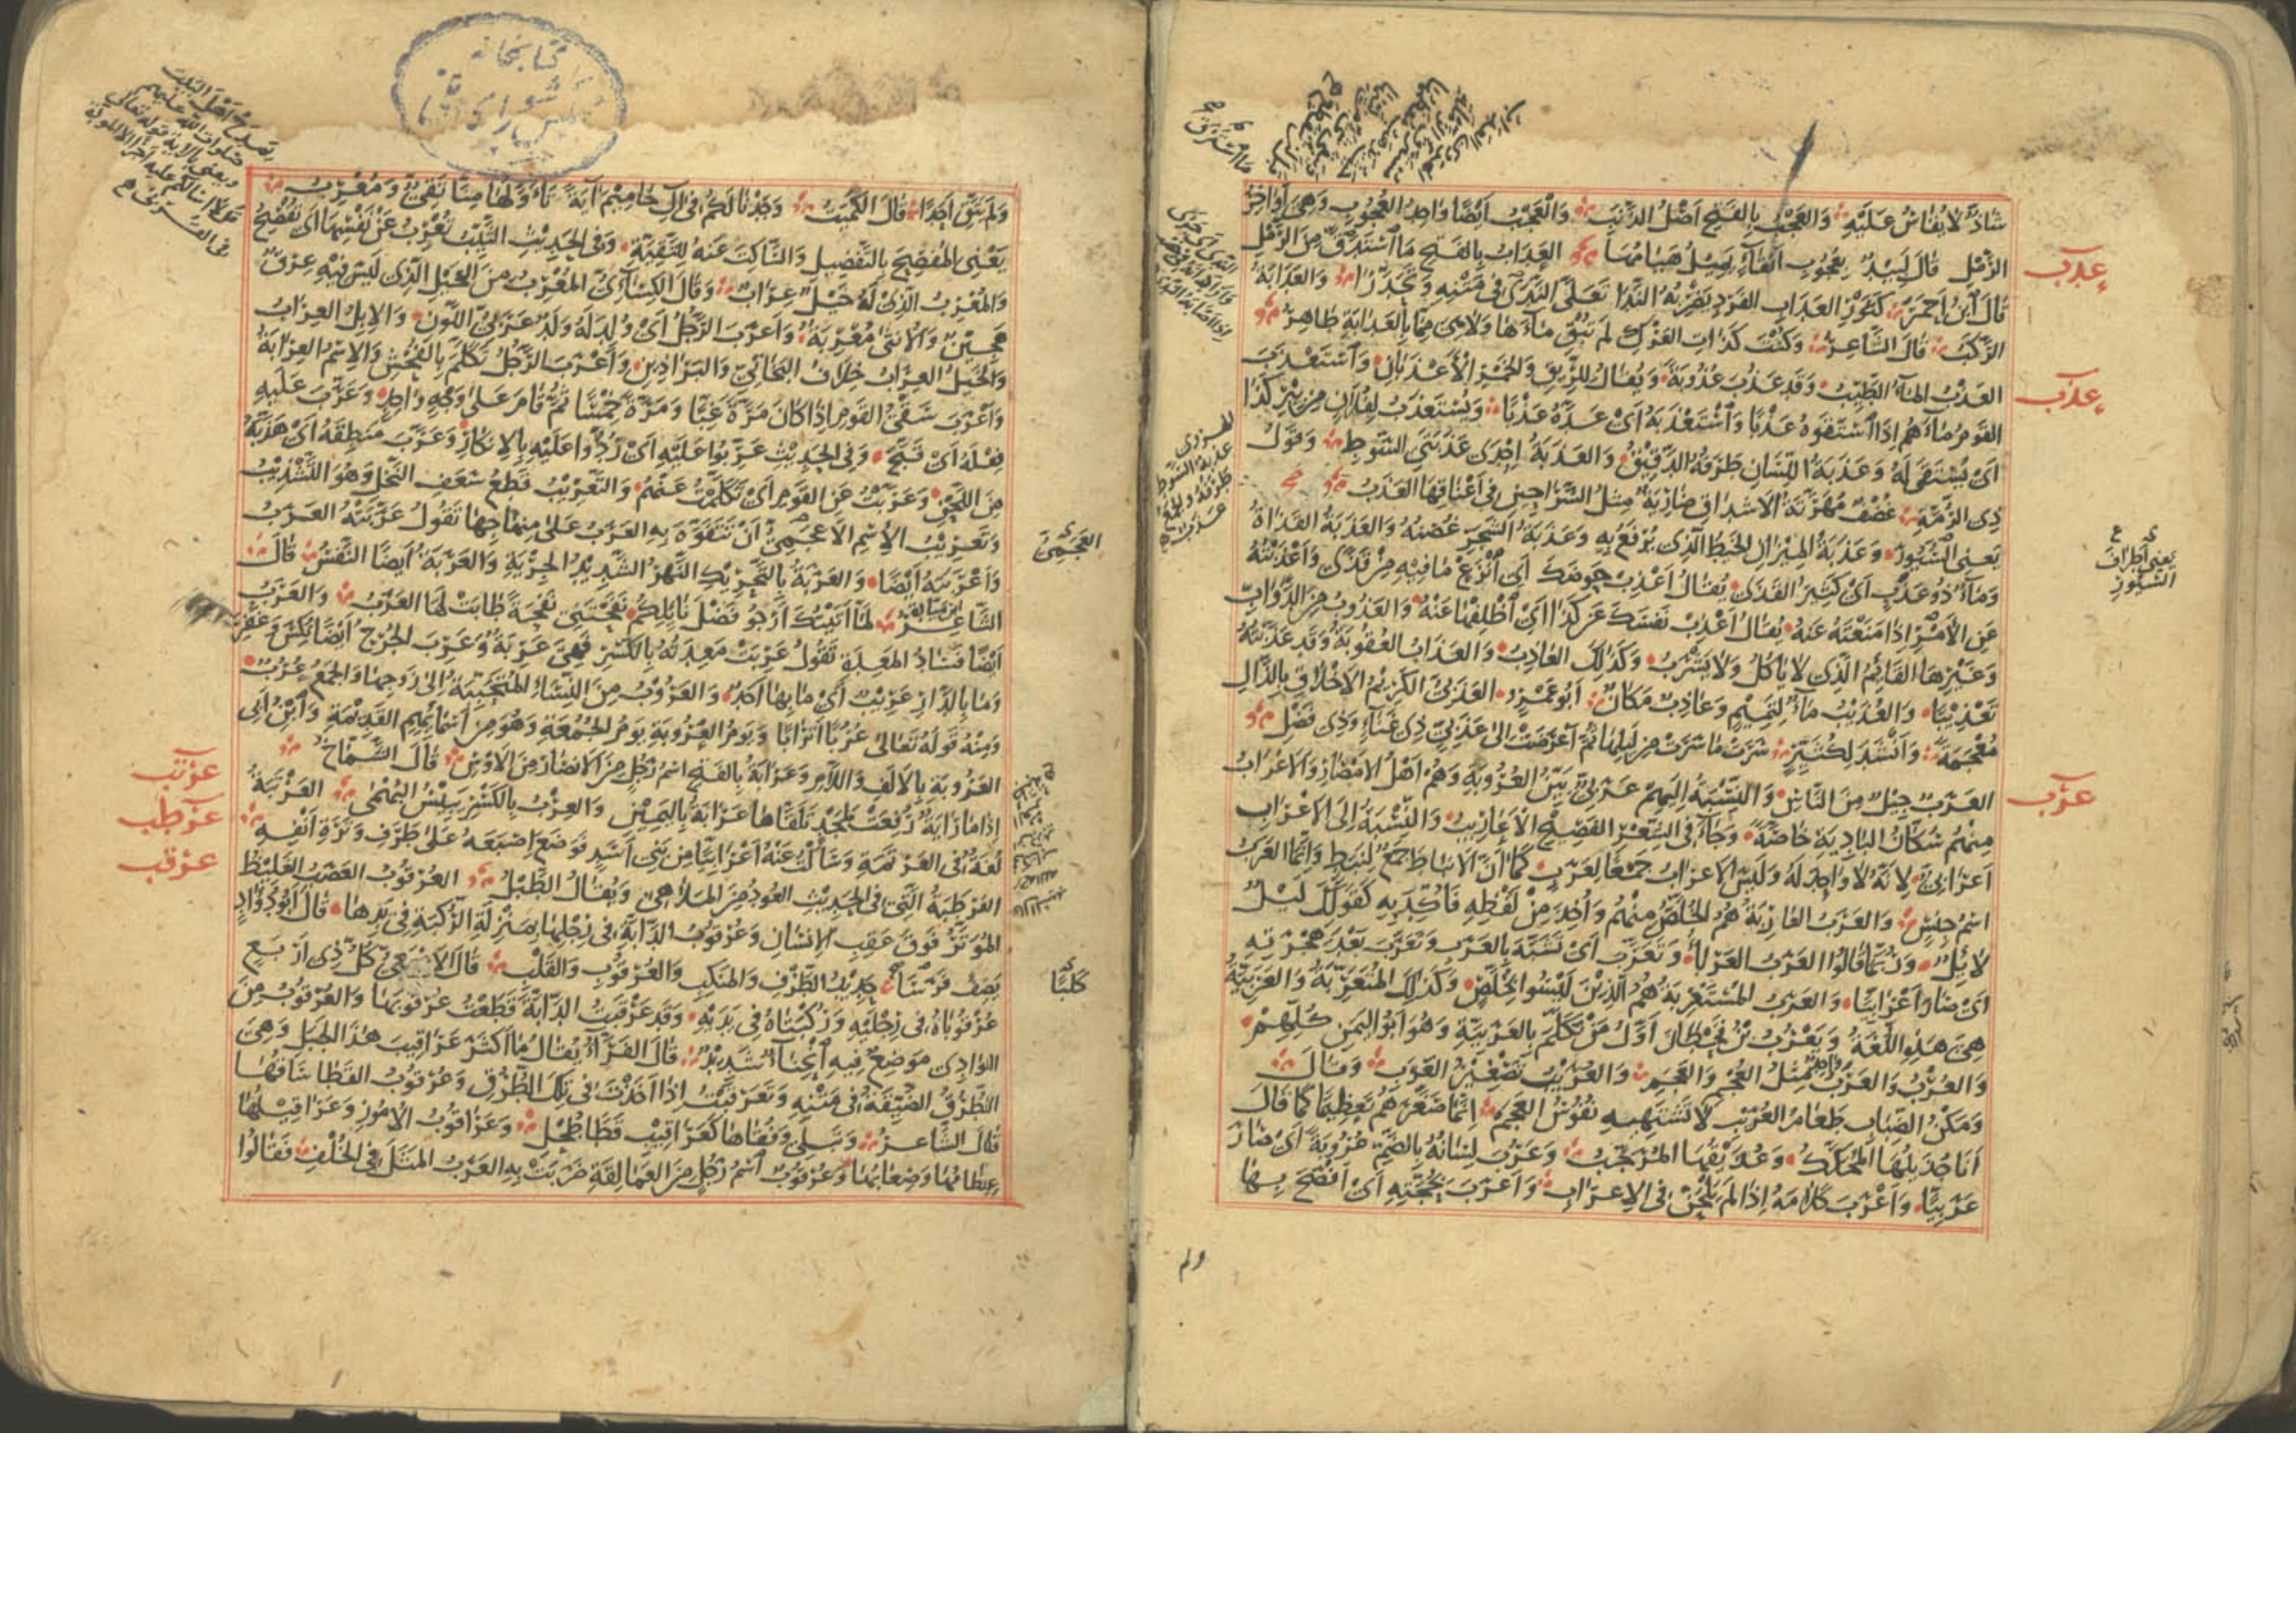 شاذ لا يقاس عليه والعجب بالفتح أصل الذنب والعجب أيضا واحد العجوب وهي أواخر
الرمل قال لبيد بعجوب أنقاء يميل هيامها العداب بالفتح ما استدق من الرمل
قال ابن أحمر كثور العداب الفرد يضربه الندا تعلى الندى في متنه وتحدرا والعدابة
الركب قال الشاعر وكنت كذات العرك لم تبق ماءها ولا هي مما بالعدابة طاهر
العذب الماء الطيب وقد عذب عذوبة ويقال للريق والخمر الأعذبان واستعذب
القوم ماءهم إذا استقوه عذبا واستعذبه أي عده عذبا ويستعذب لفلان من بئر كذا
أي يستقى له وعذبة اللسان طرفه الدقيق والعذبة إحدى عذبتي السوط وقول
ذي الرمة غضف مهرتة الأشداق ضارية مثل السراحين في أعناقها العذب
يعني السيور وعذبة الميزان الخيط الذي يرفع به وعذبة الشجر غصنه والعذبة القذاة
وماء ذو عذب أي كثير القذى يقال أعذب حوضك أي انزع ما فيه من قذى وأعذبته
عن الأمر إذا منعته عنه يقال أعذب نفسك عن كذا أي اظلفها عنه والعذوب من الدواب
وغيرها القائم الذي لا يأكل ولا يشرب وكذلك العاذب والعذاب العقوبة وقد عذبته
تعذيبا والعذيب ماء لتميم وعاذب مكان أبو عمرو العذبي الكريم الأخلاق بالذال
معجمة وأنشد لكثير سرت ما سرت من ليلها ثم أعرضت إلى عذبي ذي غناء وذي فضل
العرب جيل من الناس والنسبة إليهم عربي بين العروبة وهم أهل الأمصار والأعراب
منهم سكان البادية خاصة وجاء في الشعر الفصيح الأعاريب والنسبة إلى الأعراب
أعرابي لأنه لا واحد له وليس الأعراب جمعا لعرب كما أن الأنباط جمع لنبط وإنما العرب
اسم جنس والعرب العاربة هم الخلص منهم وأخذ من لفظه فأكد به كقولك ليل
لائل وربما قالوا العرب العرباء وتعرب أي تشبه بالعرب وتعرب بعد هجرته
أي صار أعرابيا والعرب المستعربة هم الذين ليسوا بخلص وكذلك المتعربة والعربية
هي هذه اللغة ويعرب بن قحطان أول من تكلم بالعربية وهو أبو اليمن كلهم
والعرب والعرب واحد مثل العجم والعجم والعريب تصغير العرب وقال
ومكن الضباب طعام العريب لا تشتهيه نفوس العجم إنما صغرهم تعظيما كما قال
أنا جذيلها المحكك وعذيقها المرجب وعرب لسانه بالضم عروبة أي صار
عربيا وأعرب كلامه إذا لم يلحن في الإعراب وأعرب بحجته أي أفصح بها
عدب
عذب
عرب
يعني أطراف
السيور
ولم
ولم يتق أحدا قال الكميت وجدنا لكم في آل حاميم آية تأولها منا تقي ومعرب
يعني المفصح بالتفضيل والساكت عنه للتقية وفي الحديث الثيب تعرب عن نفسها أي تفصح
والمعرب الذي له خيل عراب وقال الكسائي المعرب من الخيل الذي ليس فيه عرق
هجين والأنثى معربة وأعرب الرجل أي ولد له ولد عربي اللون والإبل العراب
والخيل العراب خلاف البخاتي والبراذين وأعرب الرجل تكلم بالفحش والاسم العرابة
وأعرب سقي القوم إذا كان مرة غبا ومرة خمسا ثم قام على وجه واحد وعرب عليه
فعله أي قبح وفي الحديث عربوا عليه أي ردوا عليه بالإنكار وعرب منطقه أي هذبه
من اللحن وعربت عن القوم أي تكلمت عنهم والتعريب قطع سعف النخل وهو التشذيب
وتعريب الاسم الأعجمي أن تتفوه به العرب على منهاجها تقول عربته العرب
وأعربته أيضا والعربة بالتحريك النهر الشديد الجرية والعربة أيضا النفس قال
الشاعر لما أتيتك أرجو فضل نائلكم نفحتني نفحة طابت لها العرب والعرب
أيضا فساد المعدة تقول عربت معدته بالكسر فهي عربة وعرب الجرح أيضا نكس وغفر
وما بالدار عريب أي ما بها أحد والعروب من النساء المتحببة إلى زوجها والجمع عرب
ومنه قوله تعالى عربا أترابا ويوم العروبة يوم الجمعة وهو من أسمائهم القديمة وابن أبي
العروبة بالألف واللام وعرابة بالفتح اسم رجل من الأنصار من الأوس قال الشماخ
إذا ما راية رفعت لمجد تلقاها عرابة باليمين والعرب بالكسر يبيس البهمى العرتبة
لغة في العرتمة وسألت عنه أعرابيا من بني أسد فوضع إصبعه على طرف وترة أنفه
العرطبة التي في الحديث العود من الملاهي ويقال الطبل العرقوب العصب الغليظ
الموتر فوق عقب الإنسان وعرقوب الدابة في رجلها بمنزلة الركبة في يدها قال أبو دؤاد
يصف فرسا حديد الطرف والمنكب والعرقوب والقلب قال الأصمعي كل ذي أربع
عرقوباه في رجليه وركبتاه في يديه وقد عرقبت الدابة قطعت عرقوبها والعرقوب من
الوادي موضع فيه انحناء شديد قال الفراء يقال ما أكثر عراقيب هذا الجبل وهي
الطرق الضيقة في متنه وتعرقبت إذا أخذت في تلك الطرق وعرقوب القطا ساقها
قال الشاعر ونبلي وفقاها كعراقيب قطا طحل وعراقوب الأمور وعراقيلها
عظامها وصعابها وعرقوب اسم رجل من العمالقة ضربت به العرب المثل في الخلف فقالوا
العجمي
كلبا
عرتب
عرطب
عرقب
كتابخانه
مجلس شوراى